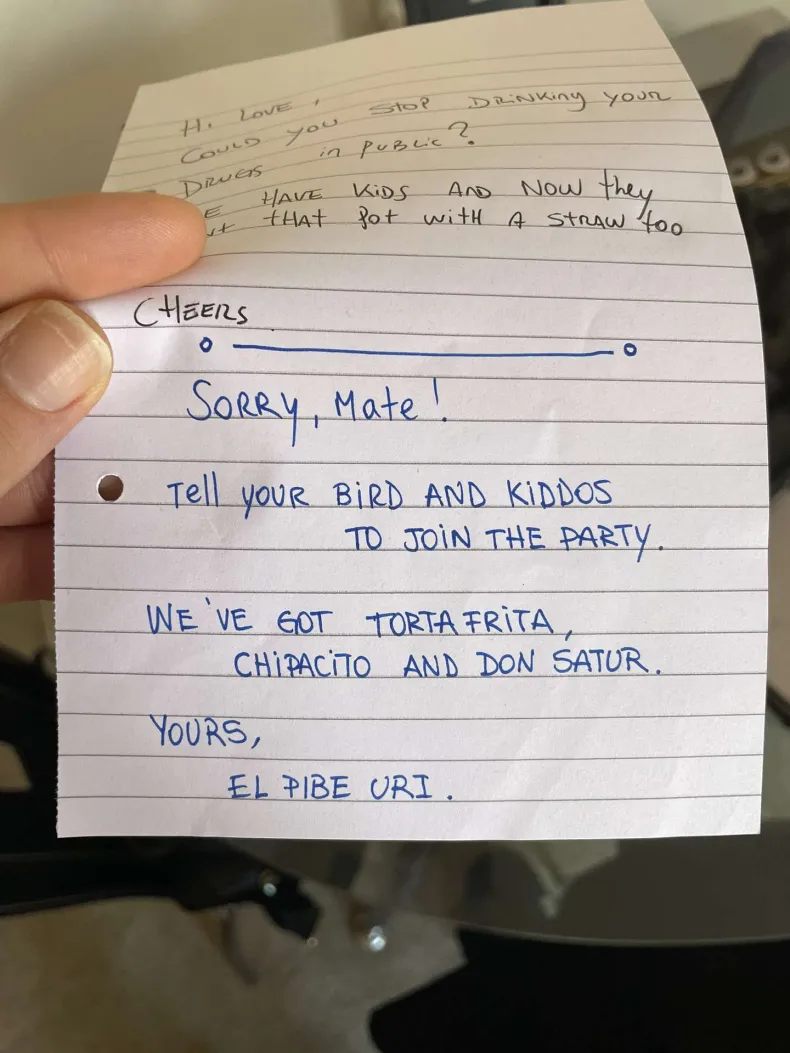 Hi LOVE,
COULD YOU STOP DRiNKiNg YOUR
DRUGS in PUBLiC?
HAVE KiDS AND NOW they
THAT POT WITH A STRAW too
CHEERS
SORRY, Mate!
Tell YOUR BiRD AND KiDDOS
TO JOiN THE PARTY.
WE'VE GOT TORTA FRiTA,
CHiPACiTO AND DON SATUR.
YOURS,
EL PIBE URI.